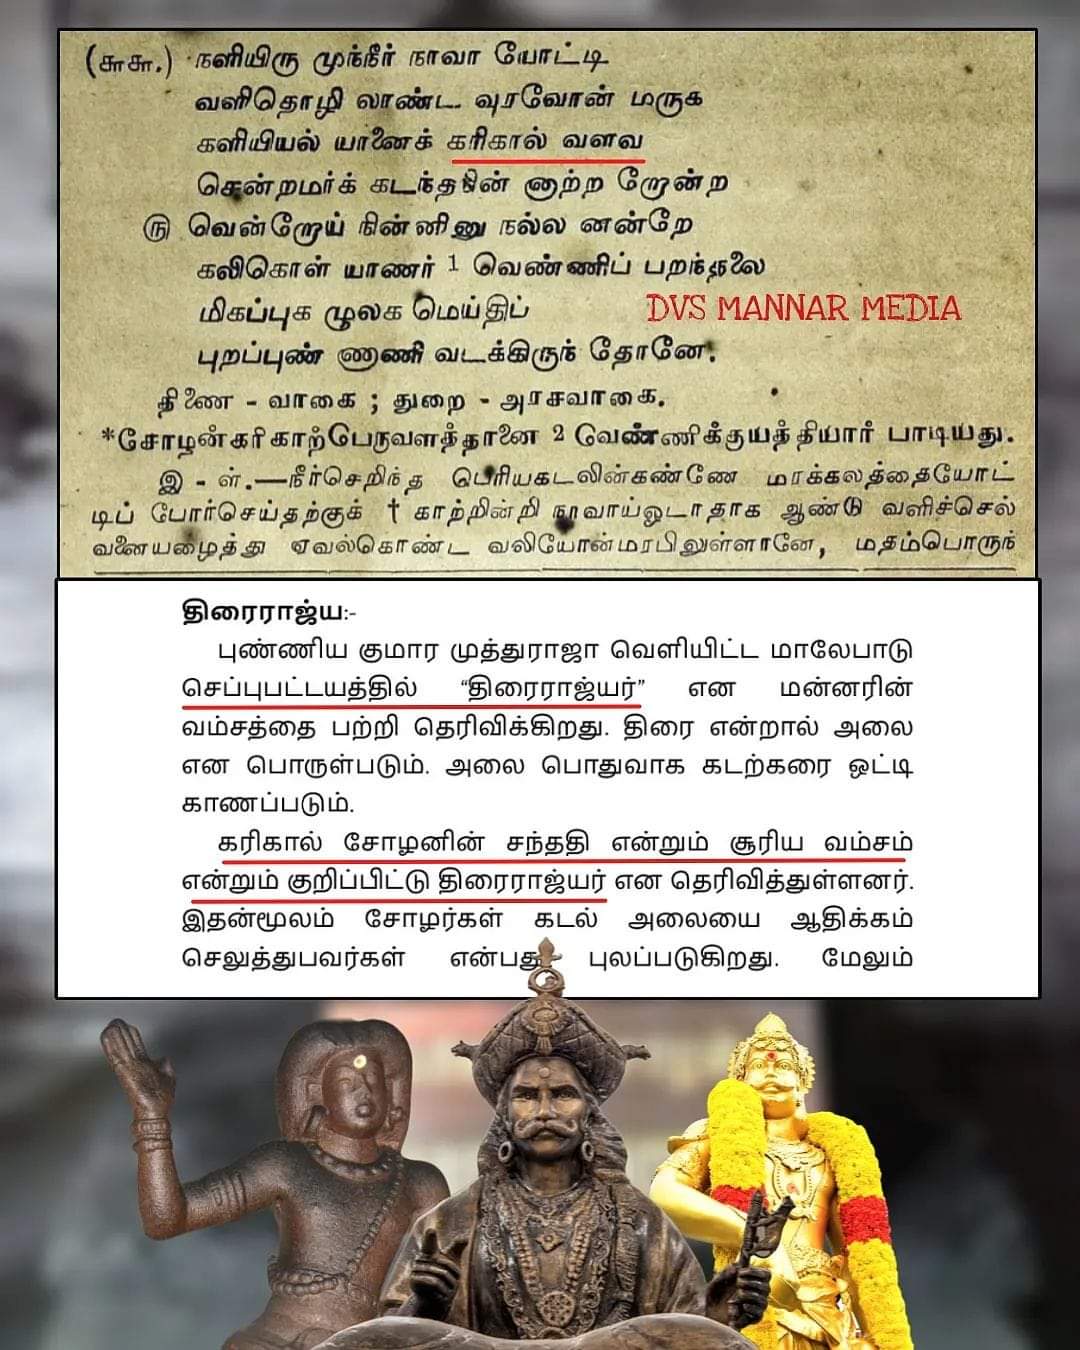 (௬௬.) நளியிரு முந்நீர் நாவா யோட்டி
வளிதொழி லாண்ட வுரவோன் மருக
களியியல் யானைக் கரிகால் வளவ
சென்றமர்க் கடந்தநின் னாற்ற றோன்ற
௫ வென்றோய் நின்னினு நல்ல னன்றே
கலிகொள் யாணர் 1 வெண்ணிப் பறந்தலை
மிகப்புக ழுலக மெய்திப்
DVS MANNAR MEDIA
புறப்புண் ணாணி வடக்கிருந் தோனே.
திணை - வாகை ; துறை - அரசவாகை.
*சோழன்கரிகாற்பெருவளத்தானை 2 வெண்ணிக்குயத்தியார் பாடியது.
இ - ள்.—நீர்செறிந்த பெரியகடலின்கண்ணே மரக்கலத்தையோட்
டிப் போர்செய்தற்குக் † காற்றின்றி நாவாய்ஓடாதாக ஆண்டு வளிச்செல்
வனையழைத்து ஏவல்கொண்ட வலியோன்மரபிலுள்ளானே, மதம்பொருந்
திரைராஜ்ய:-
புண்ணிய குமார முத்துராஜா வெளியிட்ட மாலேபாடு
செப்புபட்டயத்தில் “திரைராஜ்யர்” என மன்னரின்
வம்சத்தை பற்றி தெரிவிக்கிறது. திரை என்றால் அலை
என பொருள்படும். அலை பொதுவாக கடற்கரை ஒட்டி
காணப்படும்.
கரிகால் சோழனின் சந்ததி என்றும் சூரிய வம்சம்
என்றும் குறிப்பிட்டு திரைராஜ்யர் என தெரிவித்துள்ளனர்.
இதன்மூலம் சோழர்கள் கடல் அலையை ஆதிக்கம்
செலுத்துபவர்கள் என்பது புலப்படுகிறது. மேலும்